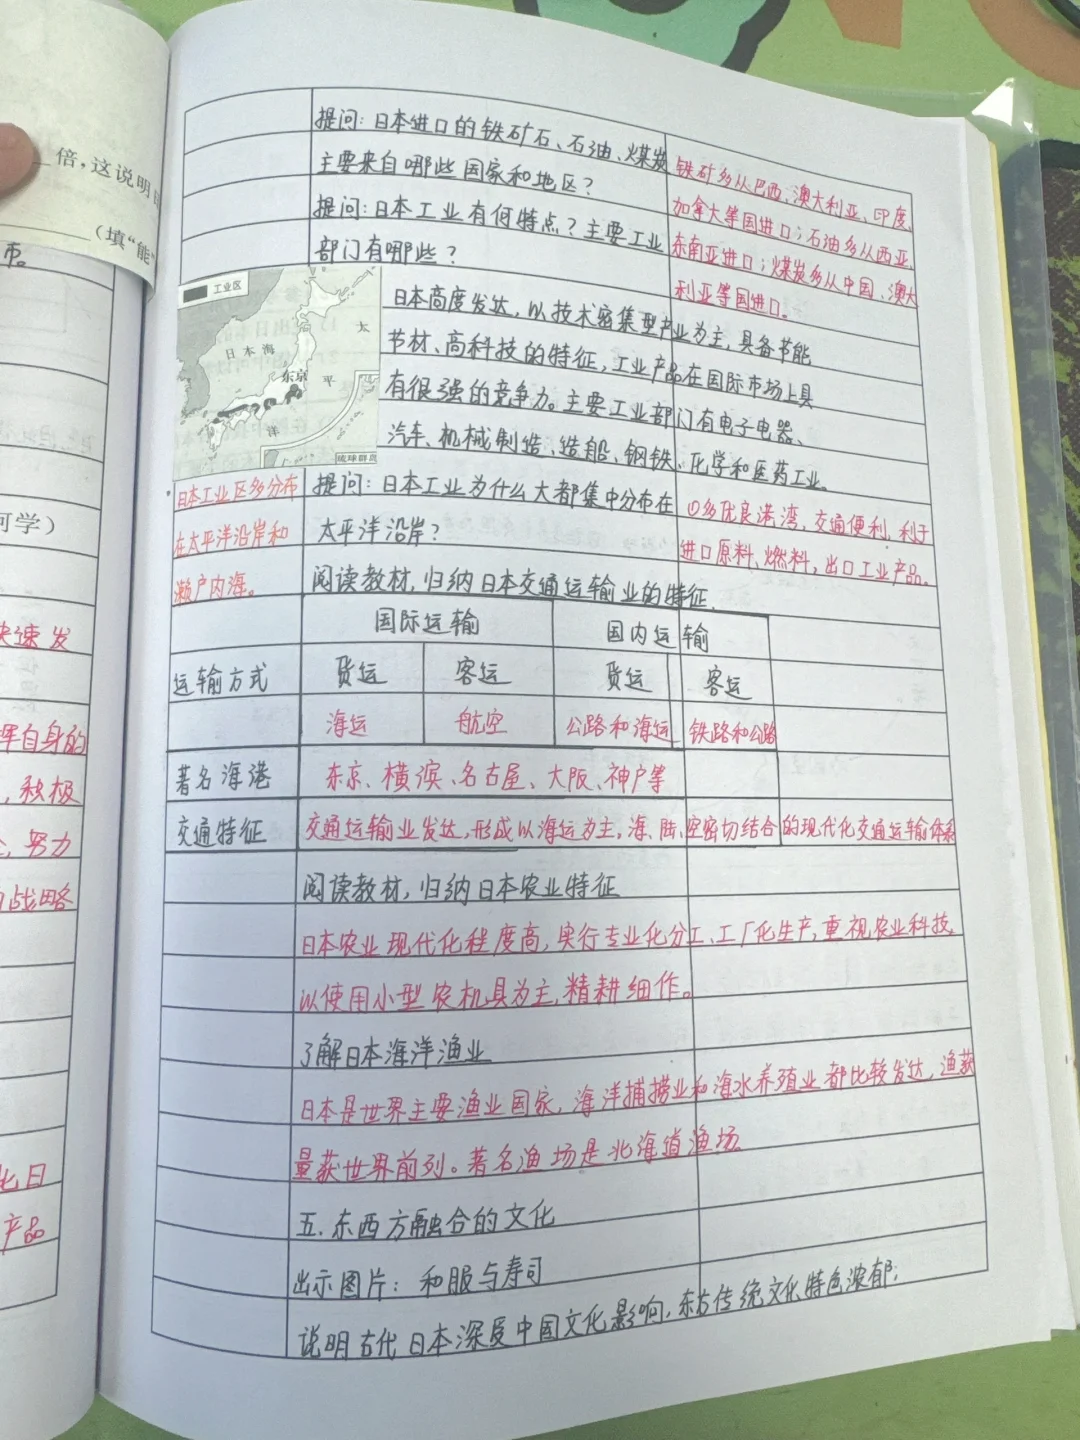 倍，这说明
（填“能”
币。
何学）
快速发
挥自身的
，积极
努力
战略
比日
产品
提问：日本进口的铁矿石、石油、煤炭
主要来自哪些国家和地区？
铁矿多从巴西、澳大利亚、印度、
加拿大等国进口；石油多从西亚、
东南亚进口；煤炭多从中国、澳大
利亚等国进口。
提问：日本工业有何特点？主要工业
部门有哪些？
工业区
日本海
东京
太
平
洋
琉球群岛
日本高度发达，以技术密集型产业为主，具备节能
节材、高科技的特征，工业产品在国际市场上具
有很强的竞争力。主要工业部门有电子电器、
汽车、机械制造、造船、钢铁、化学和医药工业。
日本工业区多分布
在太平洋沿岸和
濑户内海。
提问：日本工业为什么大都集中分布在
太平洋沿岸？
①多优良港湾，交通便利，利于
进口原料、燃料，出口工业产品。
阅读教材，归纳日本交通运输业的特征.
国际运输 国内运输
运输方式 货运 客运 货运 客运
海运 航空 公路和海运 铁路和公路
著名海港 东京、横滨、名古屋、大阪、神户等
交通特征 交通运输业发达，形成以海运为主，海、陆、空密切结合的现代化交通运输体系
阅读教材，归纳日本农业特征
日本农业现代化程度高，实行专业化分工、工厂化生产，重视农业科技，
以使用小型农机具为主，精耕细作。
了解日本海洋渔业
日本是世界主要渔业国家，海洋捕捞业和海水养殖业都比较发达，渔获
量获世界前列。著名渔场是北海道渔场.
五.东西方融合的文化
出示图片：和服与寿司
说明古代日本深受中国文化影响，东方传统文化特色浓郁；